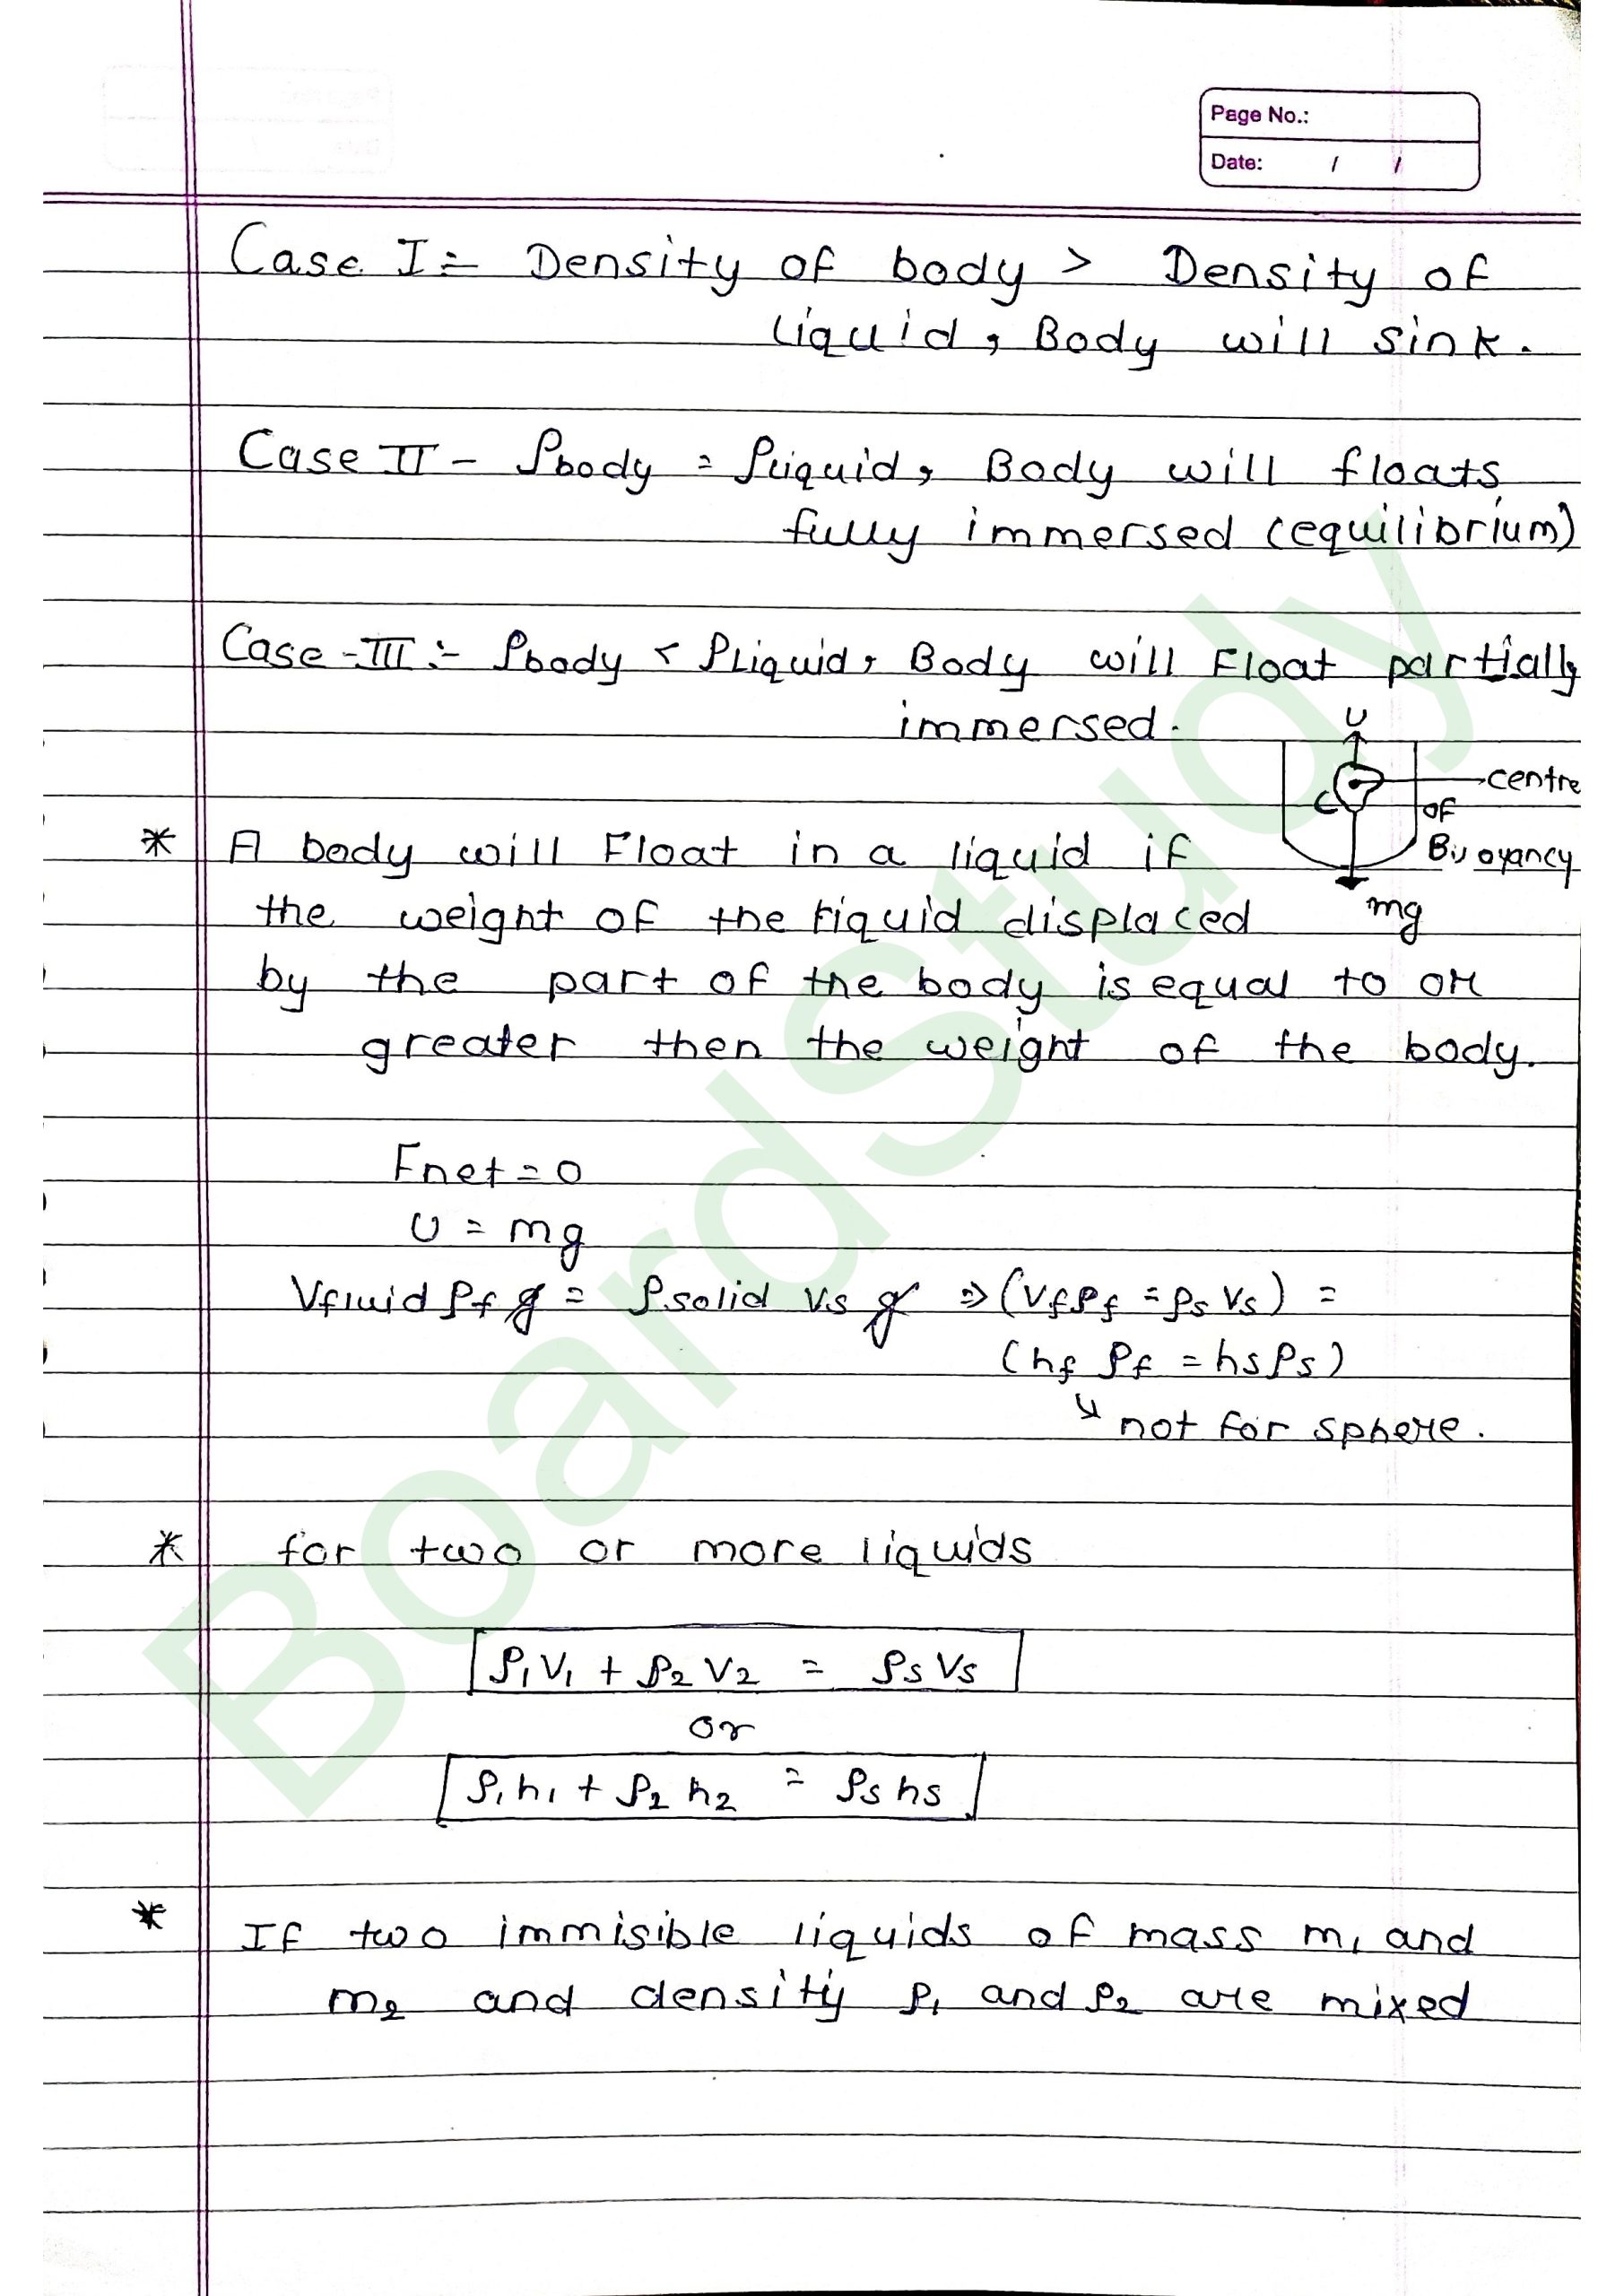 Page No.:
Date: / /
Case I :- Density of body > Density of
Liquid, Body will sink.
Case II - ρbody = ρLiquid, Body will floats
fully immersed (equilibrium)
Case-III :- ρbody < ρLiquid, Body will Float partially
immersed.
U
centre
C
of
Buoyancy
mg
* A body will Float in a liquid if
the weight of the liquid displaced
by the part of the body is equal to or
greater then the weight of the body.
Fnet = 0
U = mg
Vfluid ρf g = ρsolid Vs g ⇒ (Vf ρf = ρs Vs) =
(hf ρf = hs ρs)
↘ not for sphere.
* for two or more liquids
ρ1 V1 + ρ2 V2 = ρs Vs
or
ρ1 h1 + ρ2 h2 = ρs hs
* If two immisible liquids of mass m1 and
m2 and density ρ1 and ρ2 are mixed
BoardStudy